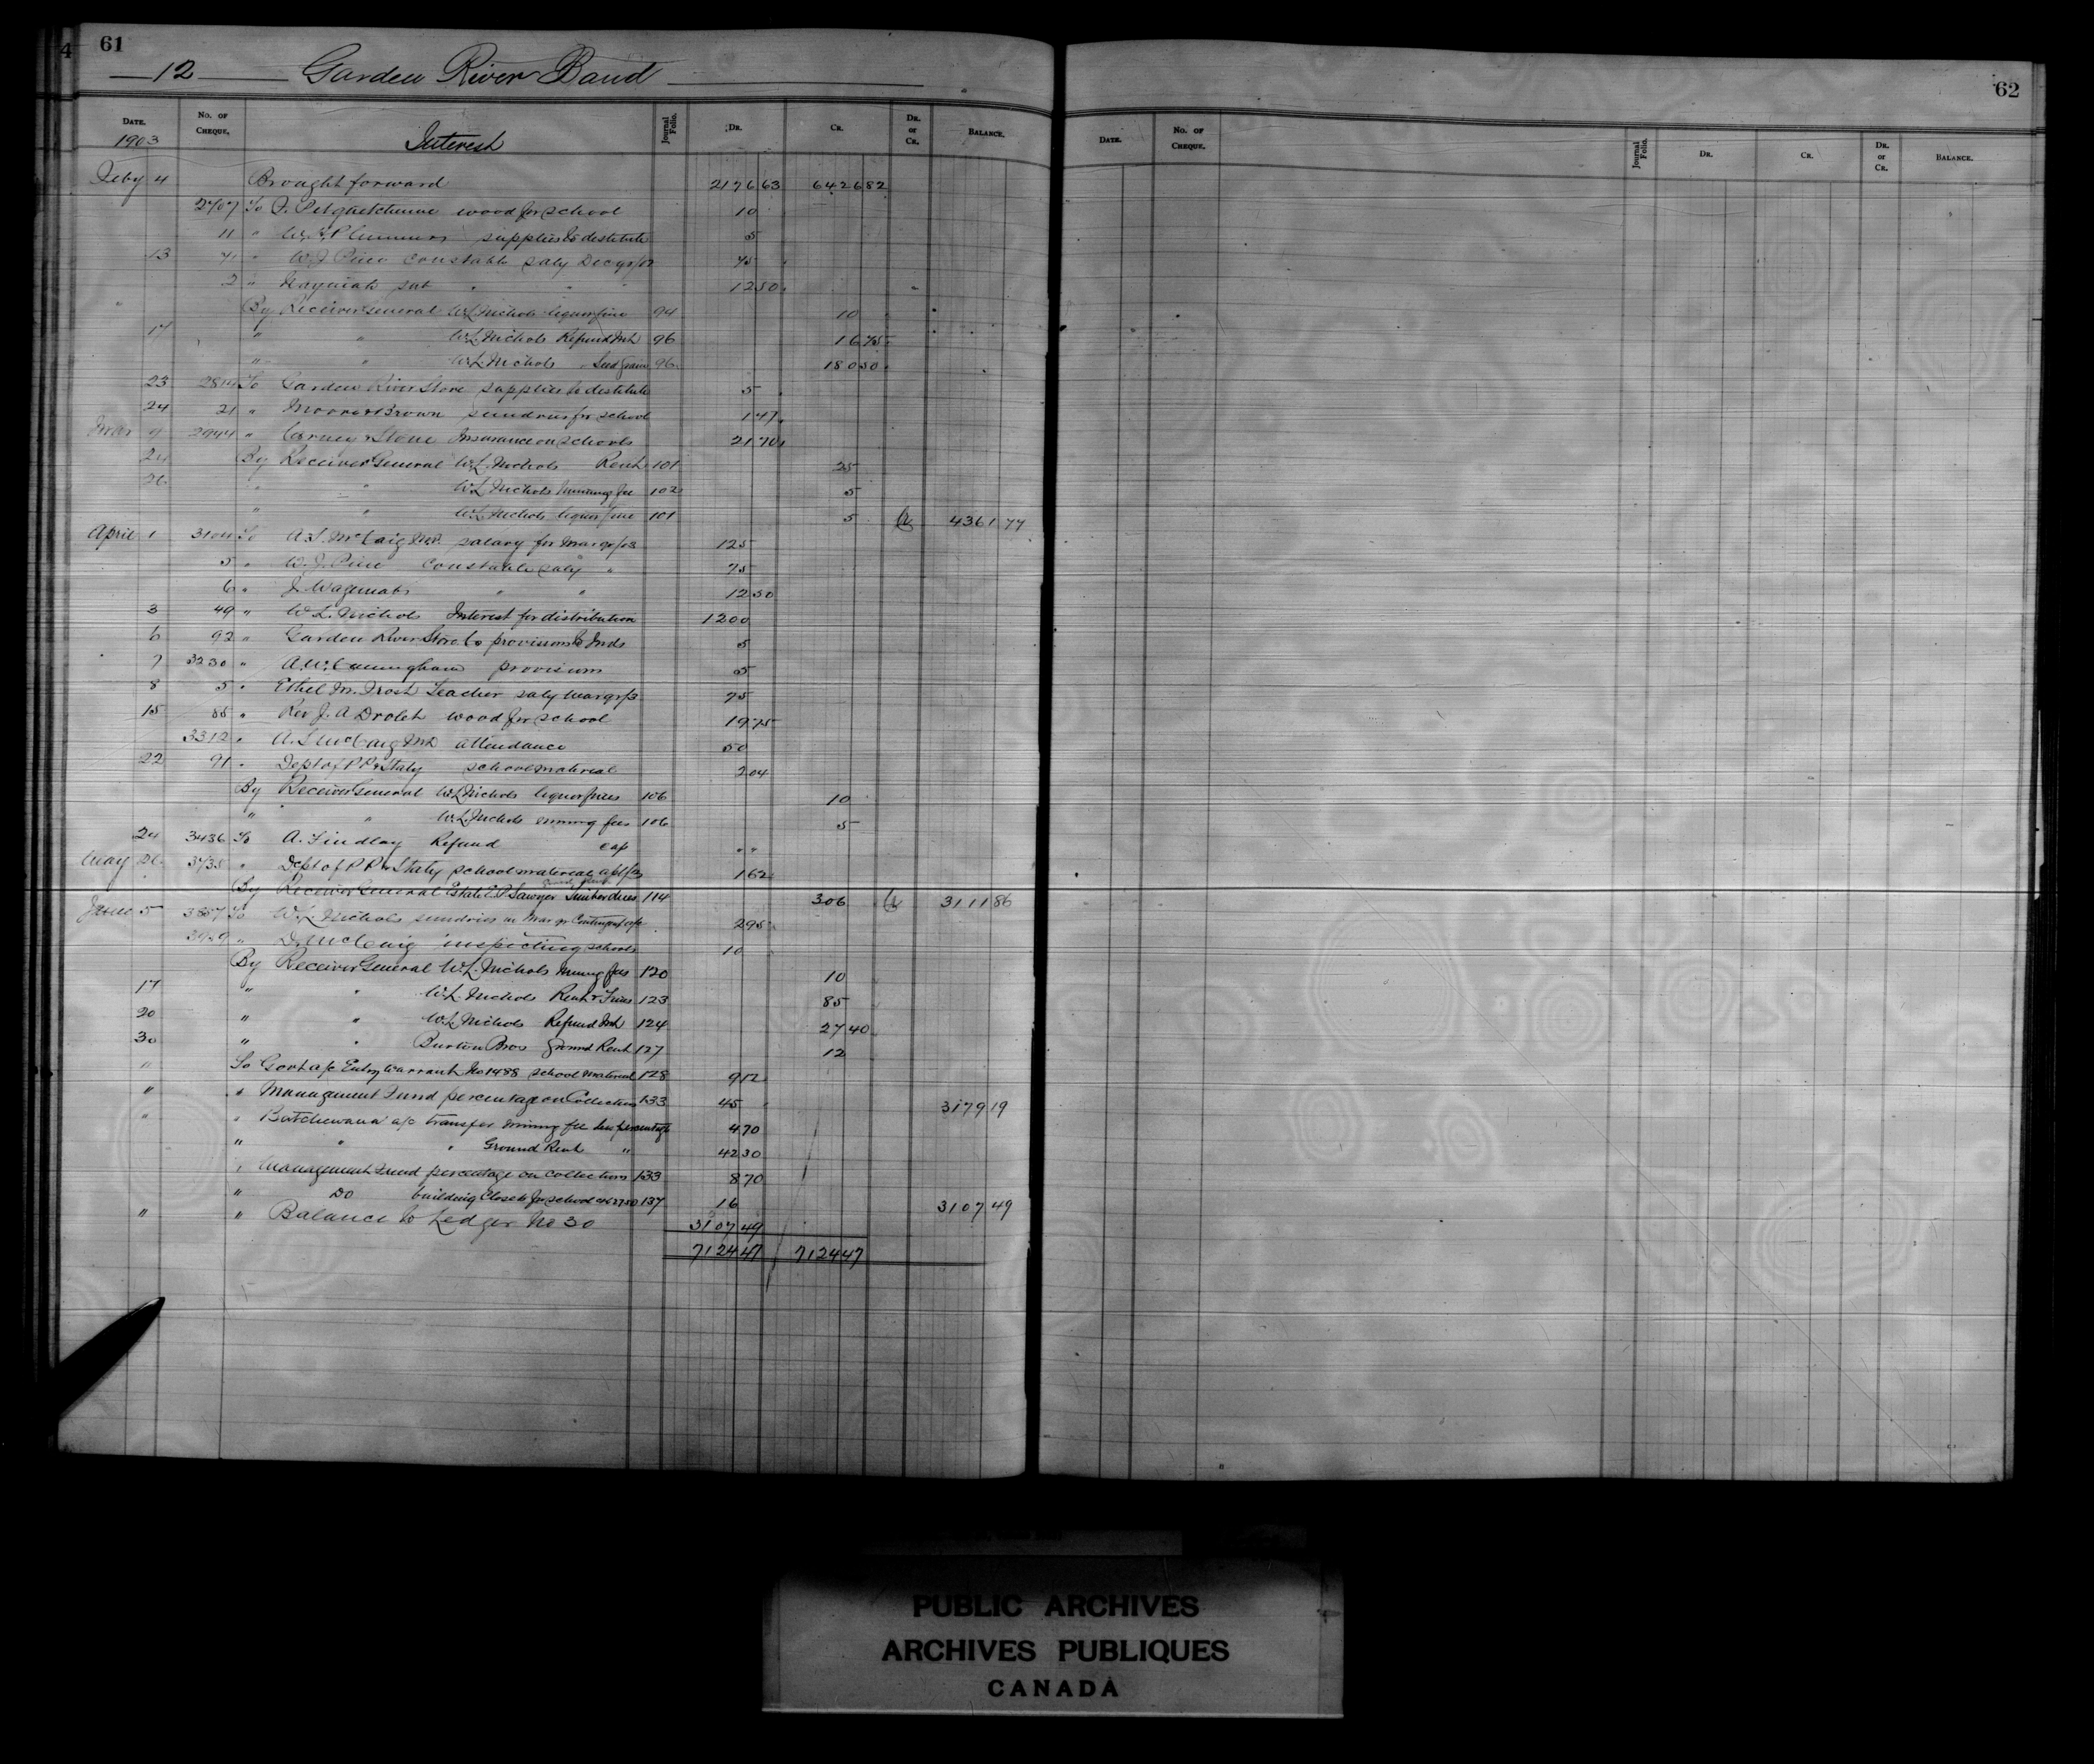 4 61
12 Garden River Band
DATE. No. OF CHEQUE. Interest Journal Folio. DR. CR. DR. or CR. BALANCE.
1903
Feby 4 Brought forward 2176 63 6426 82
2707 To wood for school 10
11 " W.H. Plummer supplies to destitute 5
13 71 " W.J. Pine Constable saly Dec qr/02 75
2 " sub " " 12 50
" By Receiver General W.L. Nichols liquor fine 94 10
17 " " W.L. Nichols Refund Int 96 16 75
" " W.L. Nichols Seed Grain 96 180 50
23 2814 To Garden River Store supplies to destitute 5
24 21 " Moore & Brown sundries for school 1 47
Mar 9 2944 " Carney & Stone Insurance on schools 21 70
24 By Receiver General W.L. Nichols Rent 101 25
26 " " W.L. Nichols mining fee 102 5
" " W.L. Nichols liquor fine 101 5 Cr 4361 77
April 1 3104 To A.S. McCaig M.D. salary for Mar qr/03 125
5 " W.J. Pine Constable saly " 75
6 " J. Wagemah " " 12 50
3 49 " W.L. Nichols Interest for distribution 1200
6 92 " Garden River Store Co provisions to Inds 5
7 3230 " A.W. Cunningham provisions 5
8 5 " Ethel M. Frost Teacher saly Mar qr/3 75
15 85 " Rev J.A. Drolet wood for school 19 75
3312 " A.S. McCaig M.D. attendance 50
22 91 " Dept of P.P. & Staty school material 2 04
By Receiver General W.L. Nichols liquor fines 106 10
" " W.L. Nichols mining fees 106 5
24 3436 To A. Findlay Refund Cap " "
May 26 3735 " Dept of P.P. & Staty school material apl/3 1 62
By Receiver General Estate E.P. Sawyer Timber dues 114 306 Cr 3111 86
June 5 3857 To W.L. Nichols sundries in Mar qr Contingent a/c 2 95
" D. McCaig inspecting schools 10
By Receiver General W.L. Nichols mining fees 120 10
17 " " W.L. Nichols Rent & Fines 123 85
20 " " W.L. Nichols Refund Int 124 27 40
30 " " Burton Bros ground Rent 127 12
" To Govt a/c Entry Warrant No 1488 school material 128 9 12
" " Management Fund percentage on Collections 133 45 3179 19
" " Batchewana a/c transfer mining fee less percentage 4 70
" " " Ground Rent " 42 30
" Management Fund percentage on collections 133 8 70
" Do building Closets for school 137 16 3107 49
" " Balance to Ledger No 30 3107 49
7124 47 7124 47
62
DATE. No. OF CHEQUE. Journal Folio. DR. CR. DR. or CR. BALANCE.
PUBLIC ARCHIVES
ARCHIVES PUBLIQUES
CANADA